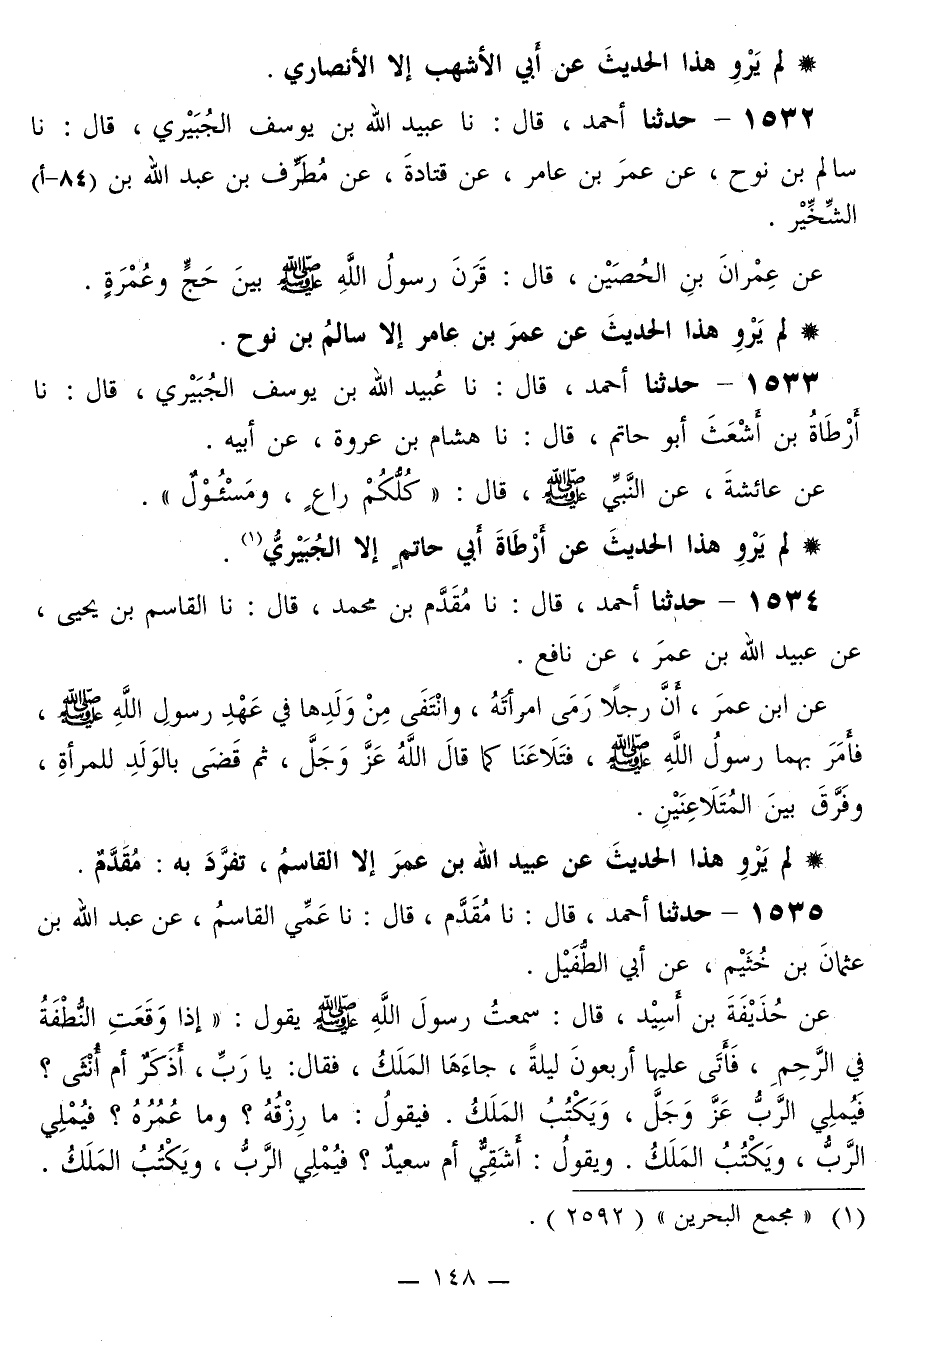 * لم يَرْوِ هذا الحديثَ عن أَبي الأشهب إلا الأنصاري .
١٥٣٢ – حدثنا أحمد ، قال : نا عبيد الله بن يوسف الجُبَيْري ، قال : نا
سالم بن نوح ، عن عمرَ بن عامر ، عن قتادةَ ، عن مُطَرِّف بن عبد الله بن (٨٤-أ)
الشِّخِّيْر .
عن عِمْرانَ بنِ الحُصَيْن ، قال : قَرَنَ رسولُ اللَّهِ ﷺ بينَ حَجٍّ وعُمْرَةٍ .
* لم يَرْوِ هذا الحديثَ عن عمرَ بن عامر إلا سالمُ بن نوح .
١٥٣٣ – حدثنا أحمد ، قال : نا عُبيد الله بن يوسف الجُبَيْري ، قال : نا
أَرْطَاةُ بن أَشْعَثَ أبو حاتم ، قال : نا هشام بن عروة ، عن أبيه .
عن عائشةَ ، عن النَّبيِّ ﷺ ، قال : « كُلُّكُمْ راعٍ ، ومَسْئُوْلٌ » .
* لم يَرْوِ هذا الحديثَ عن أَرْطَاةَ أَبي حاتمٍ إلا الجُبَيْريُّ(١) .
١٥٣٤ – حدثنا أحمد ، قال : نا مُقَدَّم بن محمد ، قال : نا القاسم بن يحيى ،
عن عبيد الله بن عمرَ ، عن نافع .
عن ابن عمرَ ، أَنَّ رجلًا رَمَى امرأتَهُ ، وانْتَفَى مِنْ وَلَدِها في عَهْدِ رسولِ اللَّهِ ﷺ ،
فأَمَرَ بهما رسولُ اللَّهِ ﷺ ، فتَلَاعَنَا كما قالَ اللَّهُ عَزَّ وَجَلَّ ، ثم قَضَى بالوَلَدِ للمرأةِ ،
وفَرَّقَ بينَ المُتَلَاعِنَيْنِ .
* لم يَرْوِ هذا الحديثَ عن عبيد الله بن عمرَ إلا القاسمُ ، تفرَّدَ به : مُقَدَّمٌ .
١٥٣٥ – حدثنا أحمد ، قال : نا مُقَدَّم ، قال : نا عَمِّي القاسمُ ، عن عبد الله بن
عثمانَ بن خُثَيْم ، عن أبي الطُّفَيْل .
عن حُذَيْفَةَ بن أَسِيْد ، قال : سمعتُ رسولَ اللَّهِ ﷺ يقول : « إذا وَقَعَتِ النُّطْفَةُ
في الرَّحِمِ ، فَأَتَى عليها أربعونَ ليلةً ، جاءَهَا المَلَكُ ، فقال: يا رَبِّ ، أَذَكَرٌ أم أُنْثَى ؟
فَيُملِي الرَّبُّ عَزَّ وَجَلَّ ، وَيَكْتُبُ المَلَكُ . فيقولُ : ما رِزْقُهُ ؟ وما عُمُرُهُ ؟ فيُمْلِي
الرَّبُّ ، ويَكْتُبُ المَلَكُ . ويقولُ : أَشَقِيٌّ أم سعيدٌ ؟ فيُمْلِي الرَّبُّ ، ويَكْتُبُ المَلَكُ .
(١) « مجمع البحرين » ( ٢٥٩٢ ) .
— ١٤٨ —